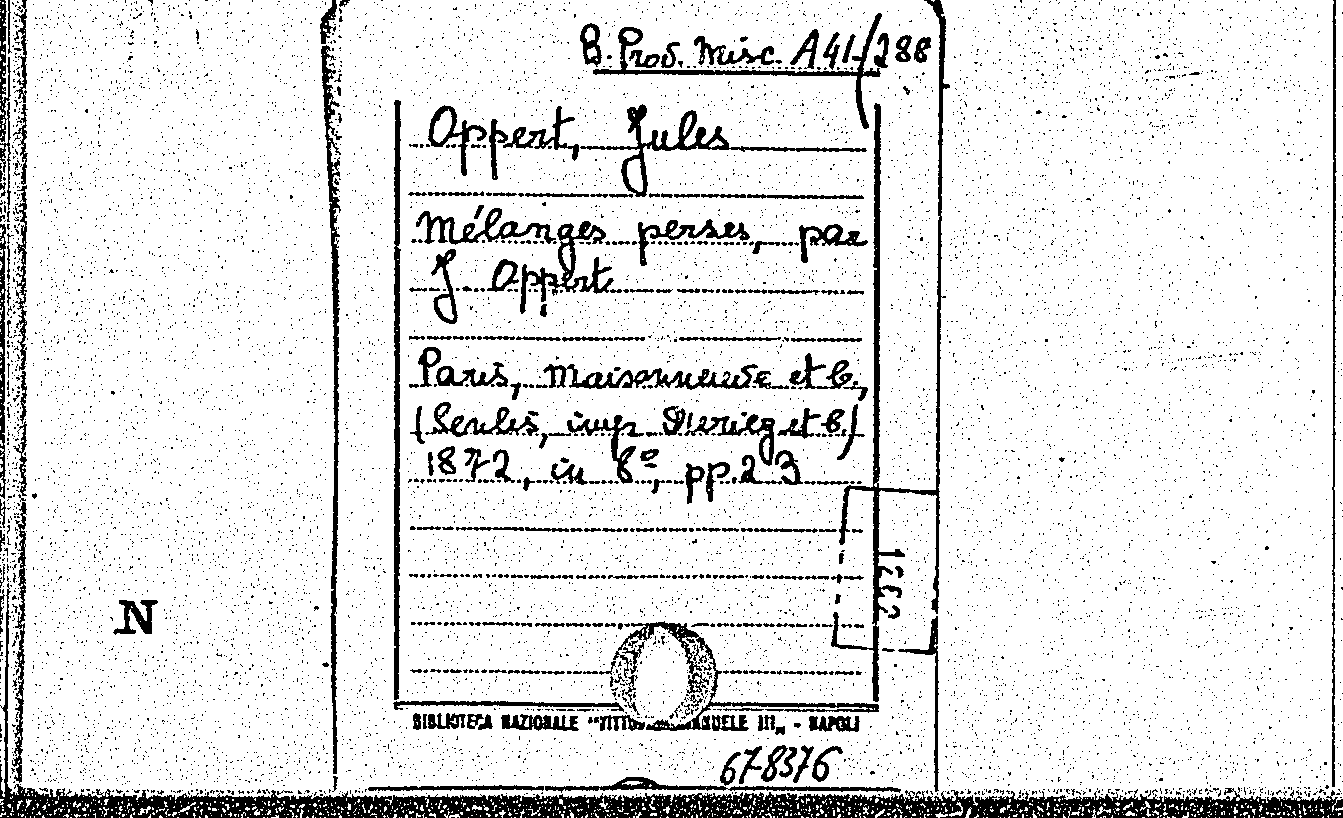 B. Prov. Misc. A41/288
Oppert, Jules
Mélanges perses, par
J. Oppert
Paris, Maisonneuve et C.,
(Senlis, imp. et C.)
1872, in 8º, pp. 23
N
BIBLIOTECA NAZIONALE "VITTORIO EMANUELE III" - NAPOLI
67-8376